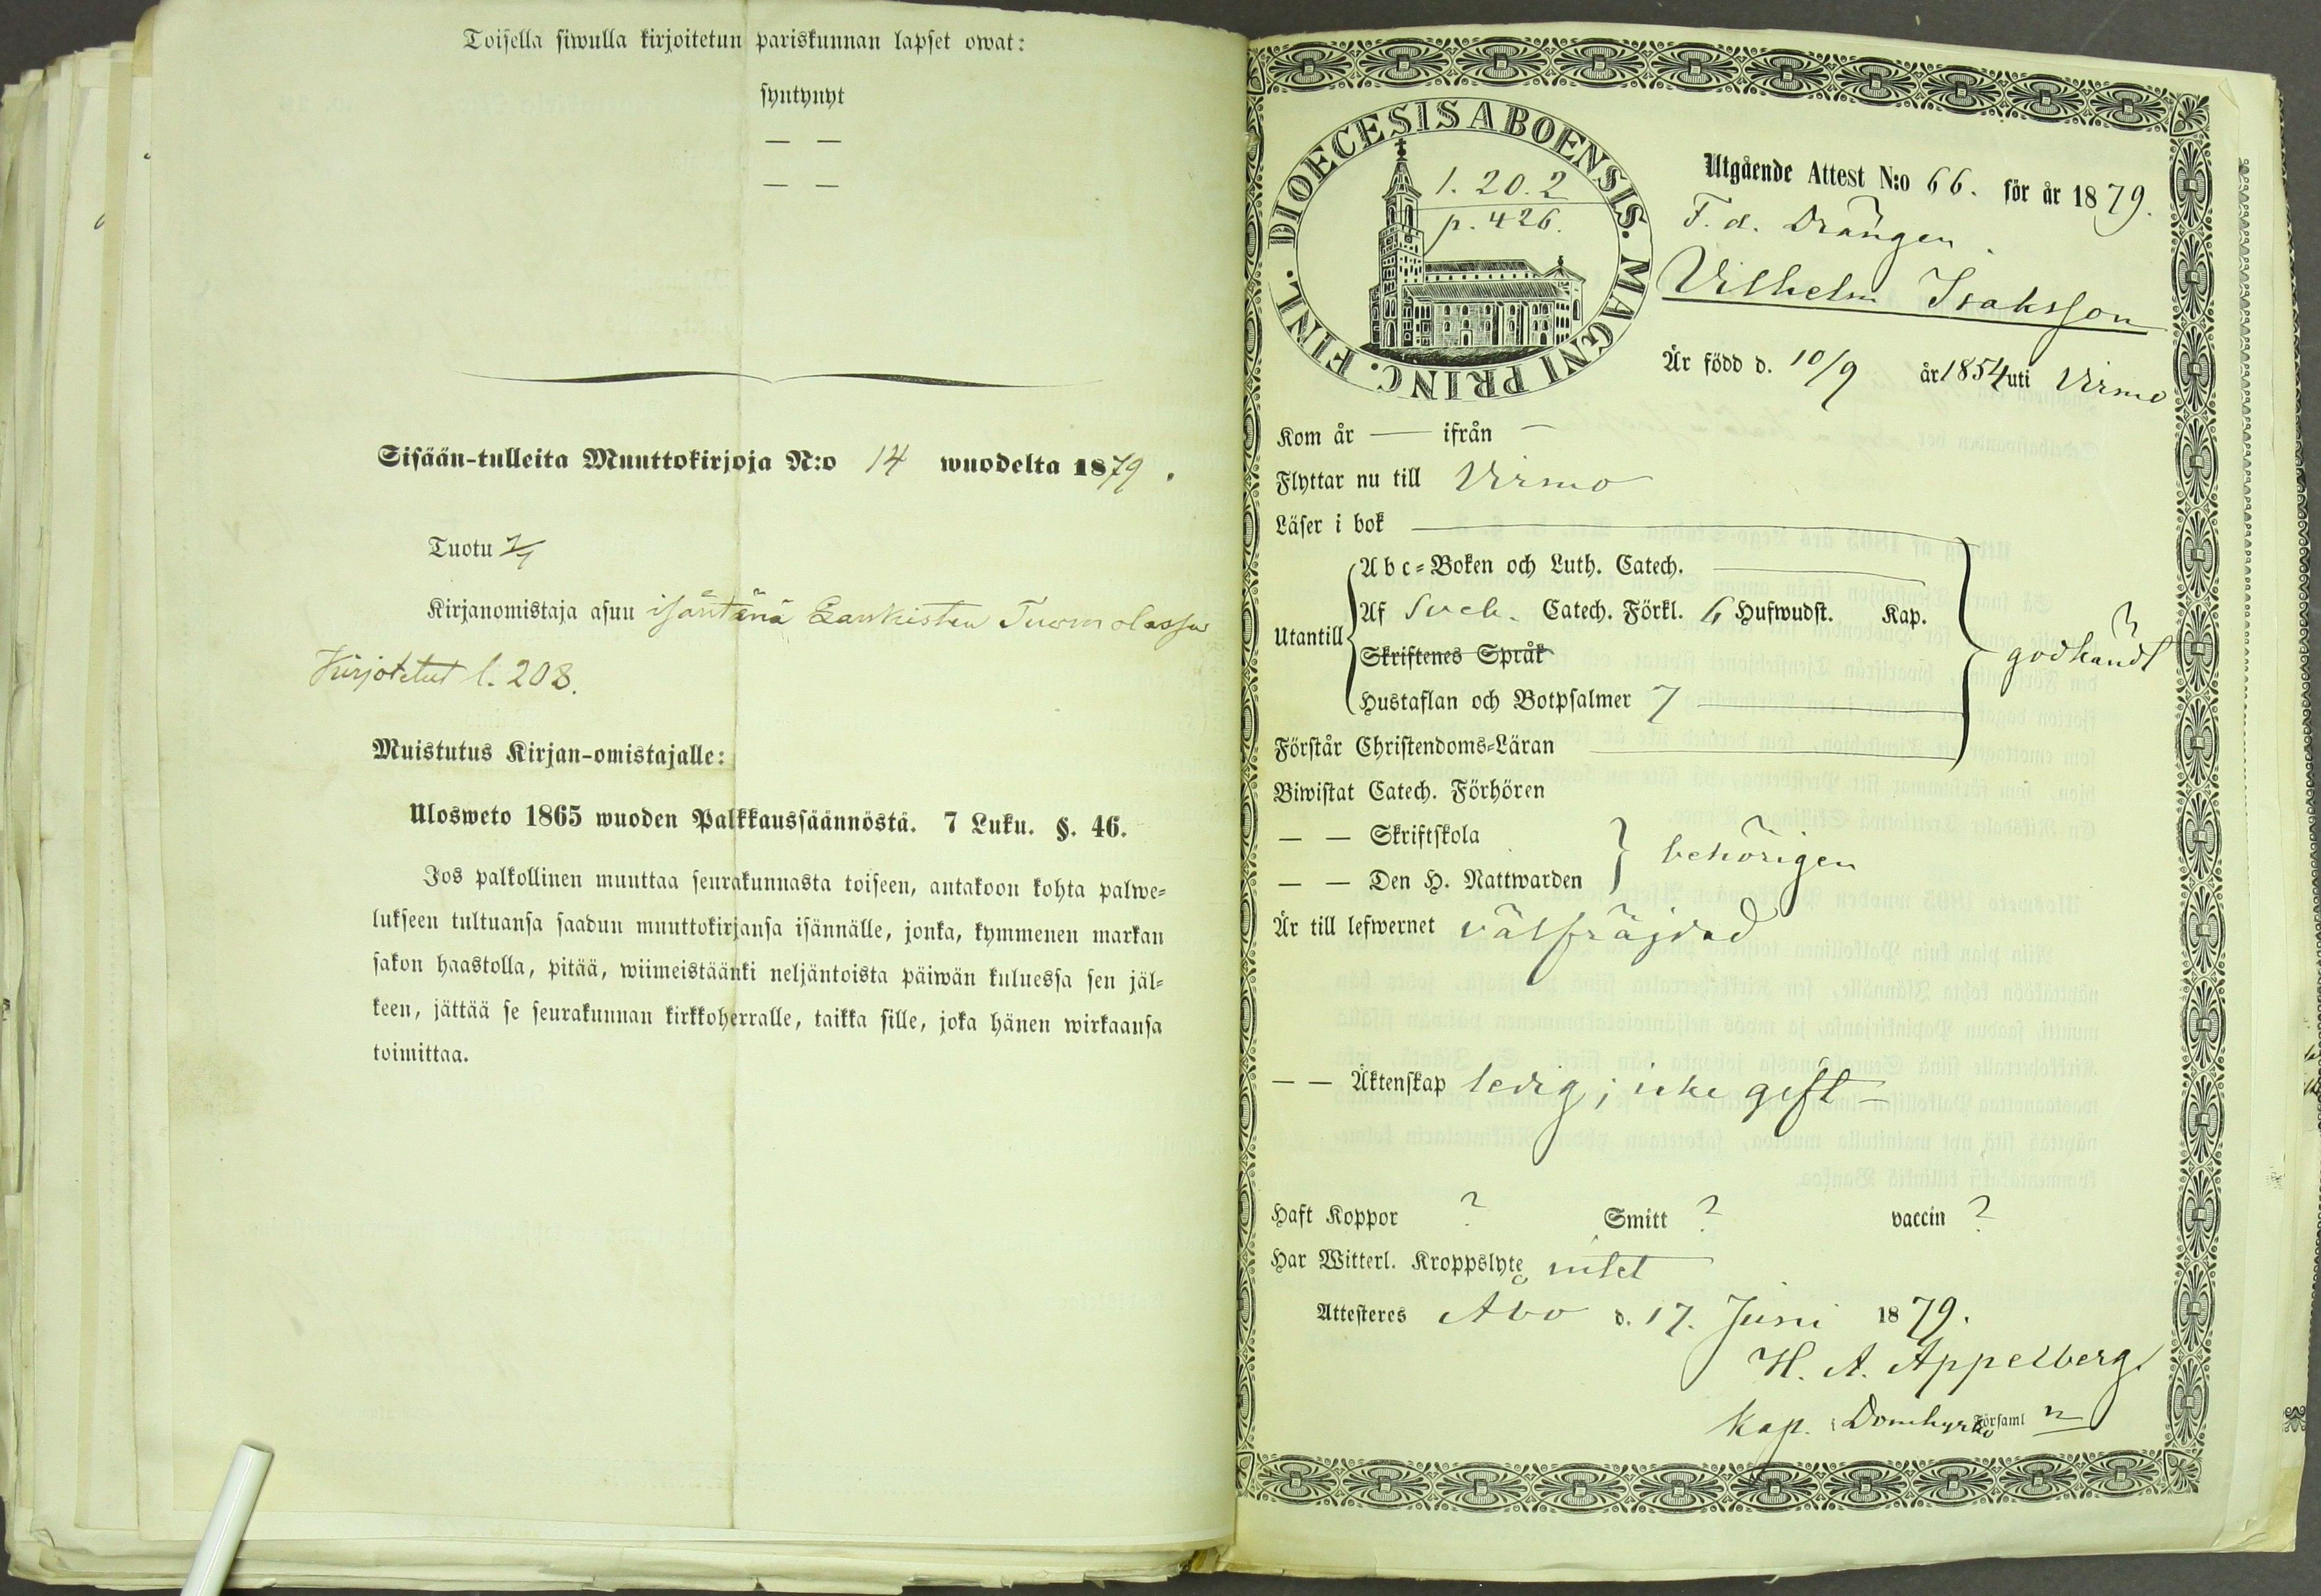 Toisella siwulla kirjoitetun pariskunnan lapset owat:
syntynyt
— —
— —
Sisään-tulleita Muuttokirjoja N:o 14 wuodelta 1879.
Tuotu 7/1
Kirjanomistaja asuu isäntänä Tuomolassa
Kirjotetut l. 208.
Muistutus Kirjan-omistajalle:
Ulosweto 1865 wuoden Palkkaussäännöstä. 7 Luku. §. 46.
Jos palkollinen muuttaa seurakunnasta toiseen, antakoon kohta palwe-
lukseen tultuansa saadun muuttokirjansa isännälle, jonka, kymmenen markan
sakon haastolla, pitää, wiimeistäänki neljäntoista päiwän kuluessa sen jäl-
keen, jättää se seurakunnan kirkkoherralle, taikka sille, joka hänen wirkaansa
toimittaa.
DIOECESIS ABOENSIS. MAGNI PRINC. FINL.
1. 20. 2
p. 426.
Utgående Attest N:o 66. för år 1879.
F. d. Drängen
Vilhelm Isaksson
Är född d. 10/9 år 1854 uti Virmo
Kom år — ifrån —
Flyttar nu till Virmo
Läser i bok
Utantill
Abc-Boken och Luth. Catech.
Af Sveb. Catech. Förkl. 6 Hufwudst. Kap.
Skriftenes Språk
Hustaflan och Botpsalmer 7
godkändt
Förstår Christendoms-Läran
Biwistat Catech. Förhören
— — Skriftskola
— — Den H. Nattwarden
behörigen
Är till lefwernet välfräjdad
— — Äktenskap ledig; icke gift —
Haft Koppor ? Smitt ? vaccin ?
Har Witterl. Kroppslyte intet
Attesteres Åbo d. 17. Juni 1879.
H. A. Appelberg
Kap. i Domkyrko Församl n